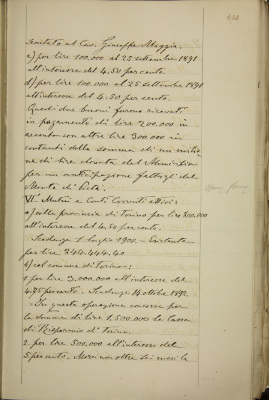 intestato al Cav. Giuseppe Maggia:
c) per lire 100,000 al 25 settembre 1891
all'interesse del 4.50 per cento.
d) per lire 100.000 al 25 settembre 1891
all'interesse del 4.50 per cento.
Questi due buoni furono ricevuti
in pagamento di lire 200.000 in
acconto con altre lire 300.000 in
contanti della somma di un milio-
ne di lire dovuta dal Municipio
per un'anticipazione fattagli dal
Monte di Pietà.
VI. Mutui e Conti Correnti attivi:
a) colla provincia di Torino per lire 500.000
all'interesse del 4.50 per cento.
Scadenza 1 Luglio 1900. Esistente
per lire 244.444.40
b) col comune di Torino:
1 per lire 3,000.000 all'interesse del
4.75 per cento. Scadenza 14 ottobre 1892.
In questa operazione concorse per
la somma di lire 1.500.000 la Cassa
di Risparmio di Torino.
2. per lire 500.000 all'interesse del
5 per cento. Mesi sei la